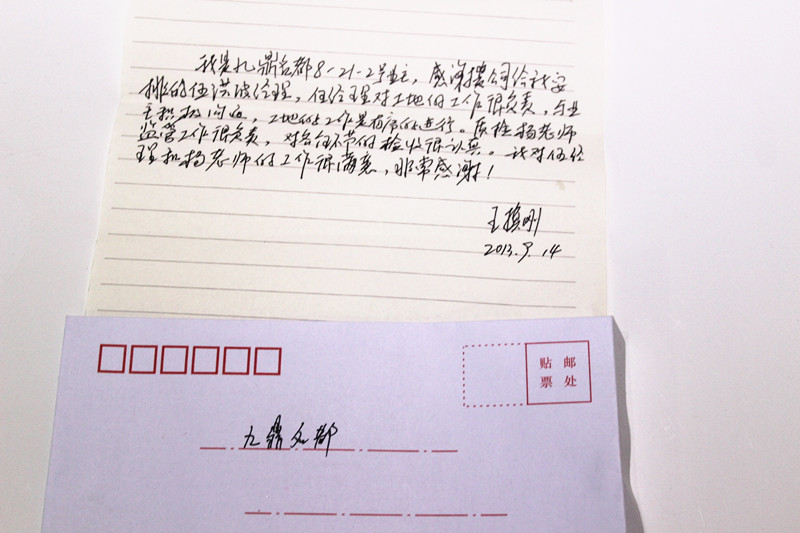 我是九鼎名都8-21-2号业主,感谢贵公司给我安
排的伍洪波经理,伍经理对工地的工作很负责,与业
主积极沟通,工地的工作是有序的进行。质检杨老师
监管工作很负责,对各个环节的检收很认真。我对伍经
理和杨老师的工作很满意,非常感谢!
王 刚
2013.9.14
贴 邮
票 处
九鼎名都